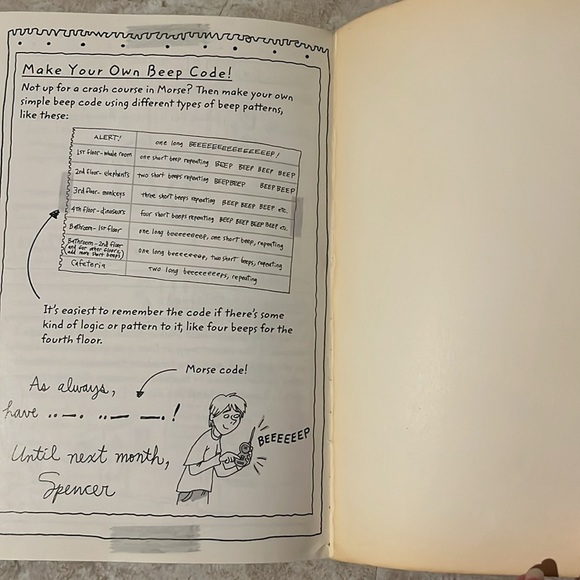 Make Your Own Beep Code!
Not up for a crash course in Morse? Then make your own
simple beep code using different types of beep patterns,
like these:
ALERT! one long BEEEEEEEEEEEEEEEP!
1st floor-whale room one short beep repeating BEEP BEEP BEEP BEEP
2nd floor-elephants two short beeps repeating BEEPBEEP BEEPBEEP
3rd floor-monkeys three short beeps repeating BEEP BEEP BEEP etc.
4th floor-dinosaurs four short beeps repeating BEEP BEEP BEEP BEEP etc.
Bathroom-1st floor one long beeeeeeeep, one short beep, repeating
Bathroom-2nd floor
(and for other floors,
add more short beeps) one long beeeeeeep, two short beeps, repeating
Cafeteria two long beeeeeeeps, repeating
It's easiest to remember the code if there's some
kind of logic or pattern to it, like four beeps for the
fourth floor.
Morse code!
As always,
have ..-. ..- -. !
BEEEEEEP
Until next month,
Spencer